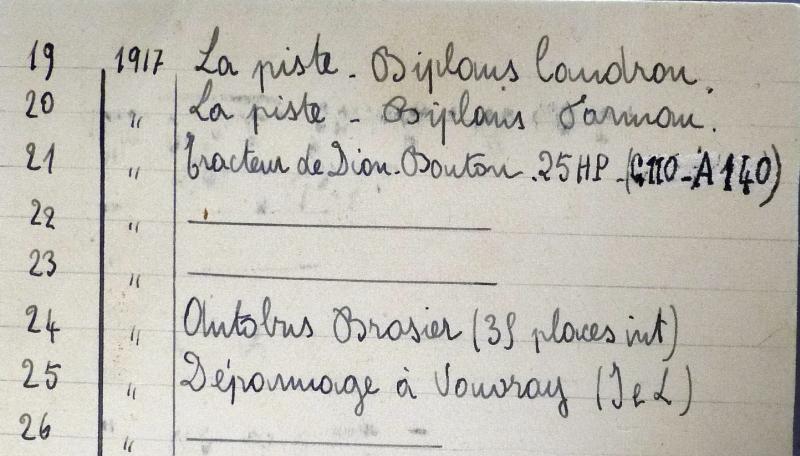 19 1917 La piste - Biplans Caudron.
20 " La piste - Biplans Farman.
21 " Tracteur de Dion-Bouton. 25 HP - (C110-A140)
22 "
23 "
24 " Autobus Brasier (39 places int)
25 " Dépannage à Vouvray (I et L)
26 "